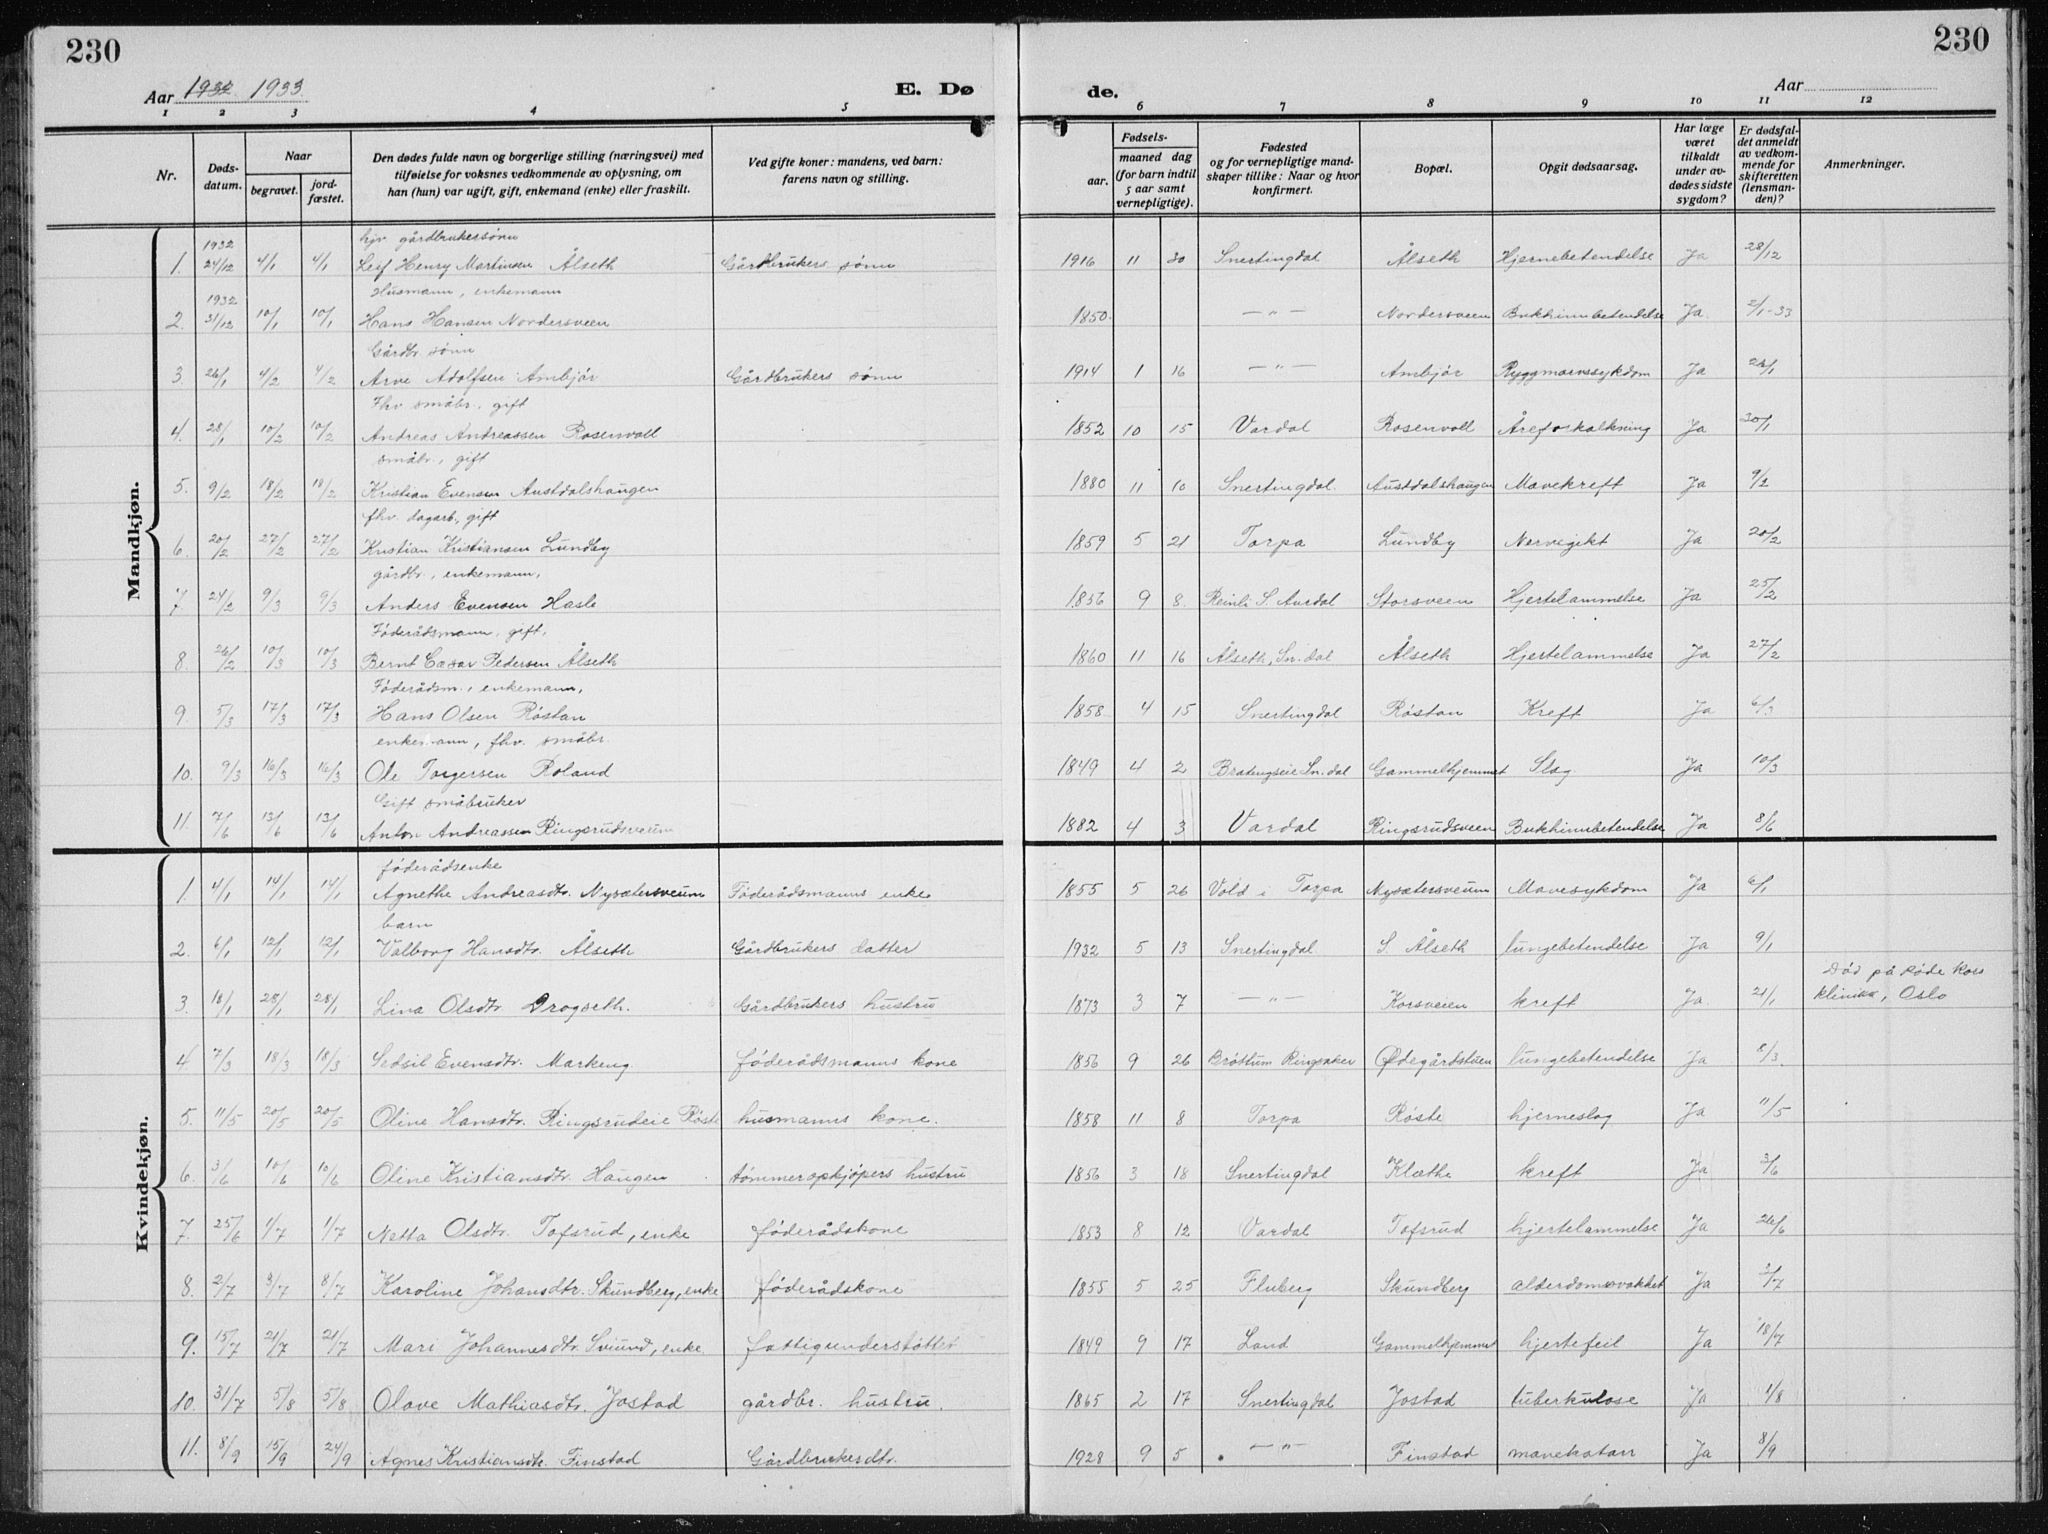 230
230
Aar 1932 1933
E. Dø
de.
Aar
1 2 3 4 5 6 7 8 9 10 11 12
Nr.
Døds-
datum.
Naar
begravet.
jord-
fæstet.
Den dødes fulde navn og borgerlige stilling (næringsvei) med
tilføielse for voksnes vedkommende av oplysning, om
han (hun) var ugift, gift, enkemand (enke) eller fraskilt.
Ved gifte koner: mandens, ved barn:
farens navn og stilling.
Fødsels-
aar.
maaned dag
(for barn indtil
5 aar samt
vernepligtige).
Fødested
og for vernepligtige mand-
skaper tillike: Naar og hvor
konfirmert.
Bopæl.
Opgit dødsaarsag.
Har læge
været
tilkaldt
under av-
dødes sidste
sygdom?
Er dødsfal-
det anmeldt
av vedkom-
mende for
skifteretten
(lensman-
den)?
Anmerkninger.
Mandkjøn.
1932 hjv. gårdbrukersønn
1. 24/12 4/1 4/1 Leif Henry Martinsen Ålseth Gårdbrukers sønn 1916 11 30 Snertingdal Ålseth Hjernebetendelse Ja 28/12
1932 Husmann, enkemann
2. 31/12 10/1 10/1 Hans Hansen Nordersveen 1850. — " — Nordersveen Bukhinnbetendelse Ja 2/1-33
Gårdbr. sønn
3. 26/1 4/2 4/2 Arve Adolfsen Ambjør Gårdbrukers sønn 1914 1 16 — " — Ambjør Ryggmarvssykdom Ja 28/1
Fhv. småbr., gift
4. 28/1 10/2 10/2 Andreas Andreassen Rosenvoll 1852 10 15 Vardal Rosenvoll Åreforkalkning Ja 30/1
småbr., gift
5. 9/2 18/2 18/2 Kristian Evensen Austdalshaugen 1880 11 10 Snertingdal Austdalshaugen Mavekreft Ja 9/2
fhv. dagarb., gift
6. 20/2 27/2 27/2 Kristian Kristiansen Lundby 1859 5 21 Torpa Lundby Nervegikt Ja 20/2
gårdbr., enkemann,
7 24/2 9/3 9/3 Anders Evensen Hasle 1856 9 8. Reinli S. Aurdal Storsveen Hjertelammelse Ja 25/2
Føderådsmann, gift,
8 26/2 10/3 10/3 Bernt Casar Pedersen Ålseth 1860 11 16 Ålseth, Sn.dal Ålseth Hjertelammelse Ja 27/2
Føderådsm., enkemann,
9. 5/3 17/3 17/3 Hans Olsen Røstan 1858 4 15 Snertingdal Røstan Kreft Ja 6/3
enkemann, fhv. småbr.
10. 9/3 16/3 16/3 Ole Torgersen Roland 1849 4 2 Bratengseie Sn.dal Gammelhjemmet Slag. Ja 10/3
Gift småbruker
11. 7/6 13/6 13/6 Anton Andreassen Ringsrudsveum 1882 4 3 Vardal Ringsrudsveen Bukhinnbetendelse Ja 8/6
Kvindekjøn.
føderådsenke
1. 4/1 14/1 14/1 Agnethe Andreasdtr. Nysætersveum Føderådsmanns enke 1855 5 26 Vold i Torpa Nysætersveum Mavesykdom Ja 6/1
barn
2. 6/1 12/1 12/1 Valborg Hansdtr. Ålseth Gårdbrukers datter 1932 5 13 Snertingdal S. Ålseth lungebetendelse Ja 9/1
3. 18/1 28/1 28/1 Lina Olsdtr. Drogseth. Gårdbrukers hustru 1873 3 7 — " — Korsveien kreft Ja 21/1 Død på Røde Kors
klinikk, Oslo
4 7/3 18/3 18/3 Sedsil Evensdtr. Markeng. føderådsmanns kone 1856 9 26 Brøttum Ringsaker Ødegårdstuen lungebetendelse Ja 8/3
5. 11/5 20/5 20/5 Oline Hansdtr. Ringsrudeie Røste husmanns kone. 1858 11 8 Torpa Røste hjerneslag Ja 11/5
6. 3/6 10/6 10/6 Oline Kristiansdtr. Haugen tømmeropkjøpers hustru 1856 3 18 Snertingdal Klæthe kreft Ja 3/6
7. 25/6 1/7 1/7 Netta Olsdtr. Tofsrud, enke føderådskone 1853 8 12 Vardal Tofsrud hjertelammelse Ja 26/6
8. 2/7 3/7 8/7 Karoline Johansdtr. Skundberg, enke føderådskone 1855 5 25 Fluberg Skundberg alderdomssvakhet Ja 3/7
9. 15/7 21/7 21/7 Mari Johannesdtr. Sviund, enke. fattigunderstøttet 1849 9 17 Land Gammelhjemmet hjertefeil Ja 18/7
10. 31/7 5/8 5/8 Olave Mathiasdtr. Jostad gårdbr. hustru. 1865 2 17 Snertingdal Jostad tuberkulose Ja 1/8
11. 8/9 15/9 24/9 Agnes Kristiansdtr. Finstad Gårdbrukersdtr. 1928 9 5 — " — Finstad mavekatarr Ja 8/9